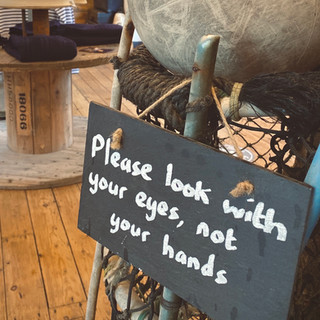 18066
Please look with
your eyes, not
your hands